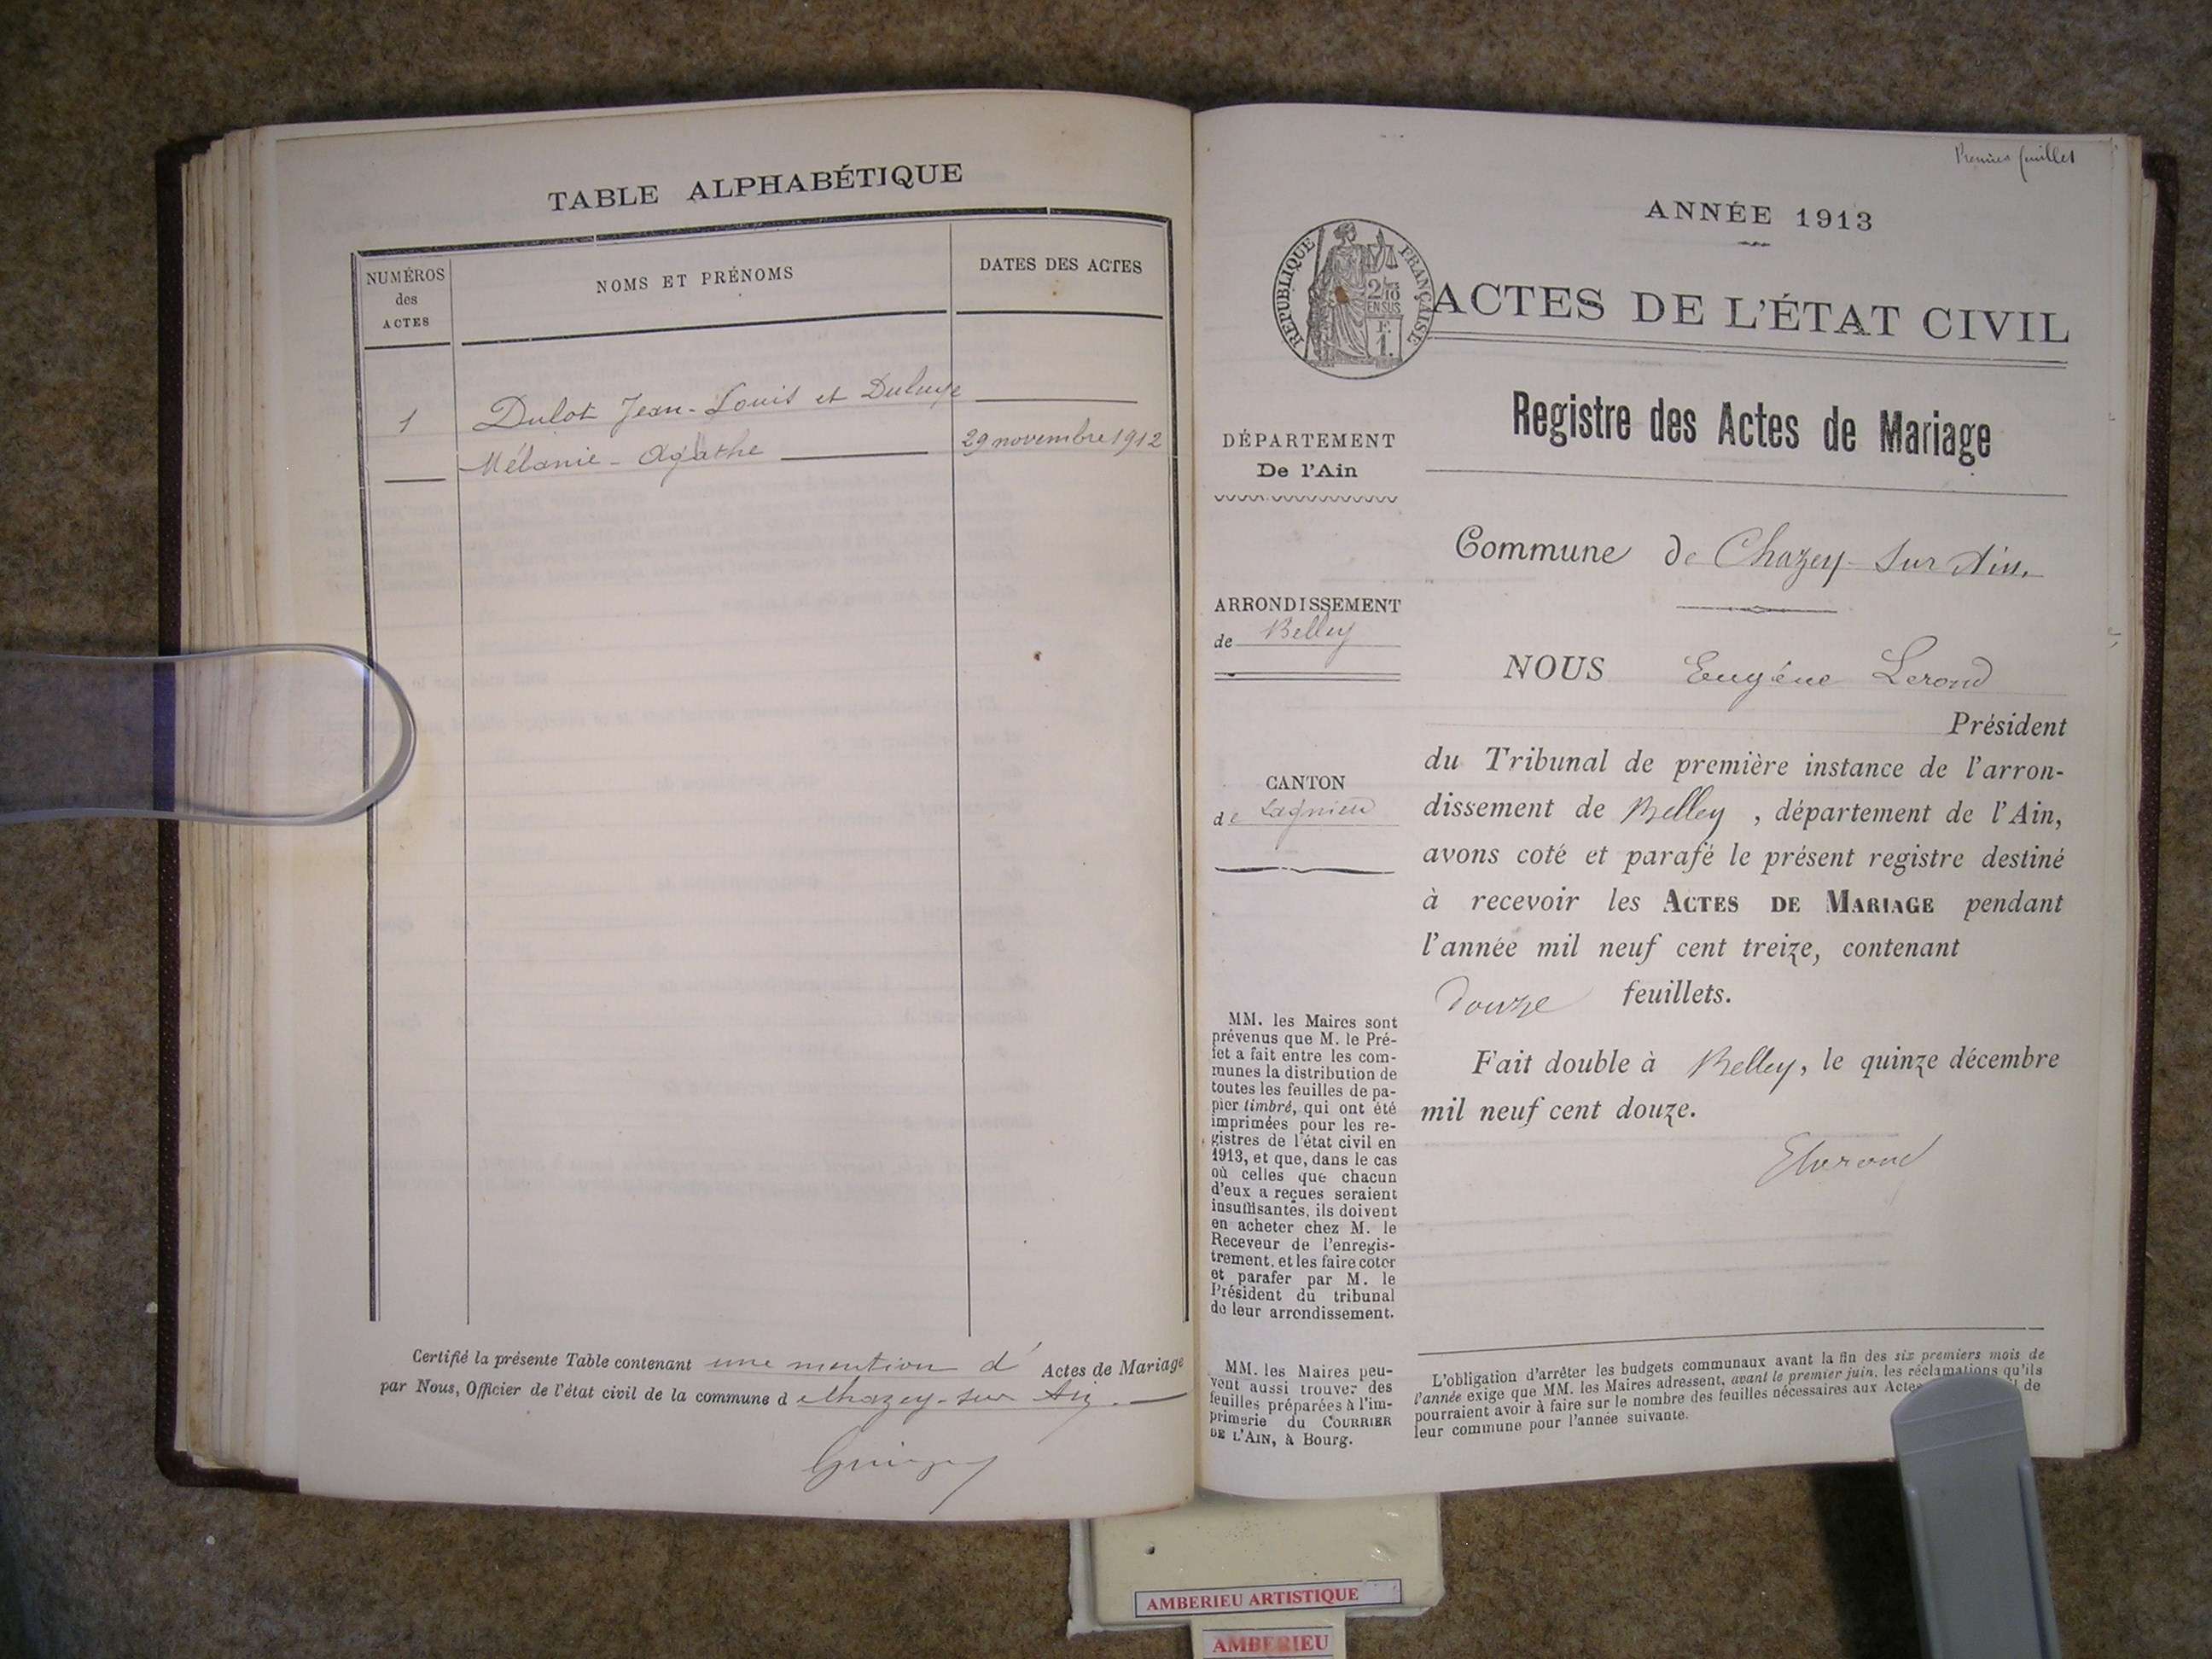 TABLE ALPHABÉTIQUE
NUMÉROS
des
ACTES
NOMS ET PRÉNOMS
DATES DES ACTES
1
Dulot Jean-Louis et
Mélanie-Agathe
29 novembre 1912
Certifié la présente Table contenant une mention d' Actes de Mariage
par Nous, Officier de l'état civil de la commune d e Chazey-sur Ain.
Premier feuillet
ANNÉE 1913
RÉPUBLIQUE FRANÇAISE
2/10
EN SUS
F.
1.
ACTES DE L'ÉTAT CIVIL
Registre des Actes de Mariage
DÉPARTEMENT
De l'Ain
ARRONDISSEMENT
de Belley
CANTON
de Lagnieu
MM. les Maires sont
prévenus que M. le Pré-
fet a fait entre les com-
munes la distribution de
toutes les feuilles de pa-
pier timbré, qui ont été
imprimées pour les re-
gistres de l'état civil en
1913, et que, dans le cas
où celles que chacun
d'eux a reçues seraient
insuffisantes, ils doivent
en acheter chez M. le
Receveur de l'enregis-
trement, et les faire coter
et parafer par M. le
Président du tribunal
de leur arrondissement.
MM. les Maires peu-
vent aussi trouver des
feuilles préparées à l'im-
primerie du COURRIER
DE L'AIN, à Bourg.
Commune de Chazey-sur Ain.
NOUS Eugène Lerond
Président
du Tribunal de première instance de l'arron-
dissement de Belley, département de l'Ain,
avons coté et parafé le présent registre destiné
à recevoir les ACTES DE MARIAGE pendant
l'année mil neuf cent treize, contenant
douze feuillets.
Fait double à Belley, le quinze décembre
mil neuf cent douze.
ELerond
L'obligation d'arrêter les budgets communaux avant la fin des six premiers mois de
l'année exige que MM. les Maires adressent, avant le premier juin, les réclamations qu'ils
pourraient avoir à faire sur le nombre des feuilles nécessaires aux Actes de
leur commune pour l'année suivante.
AMBERIEU ARTISTIQUE
AMBERIEU